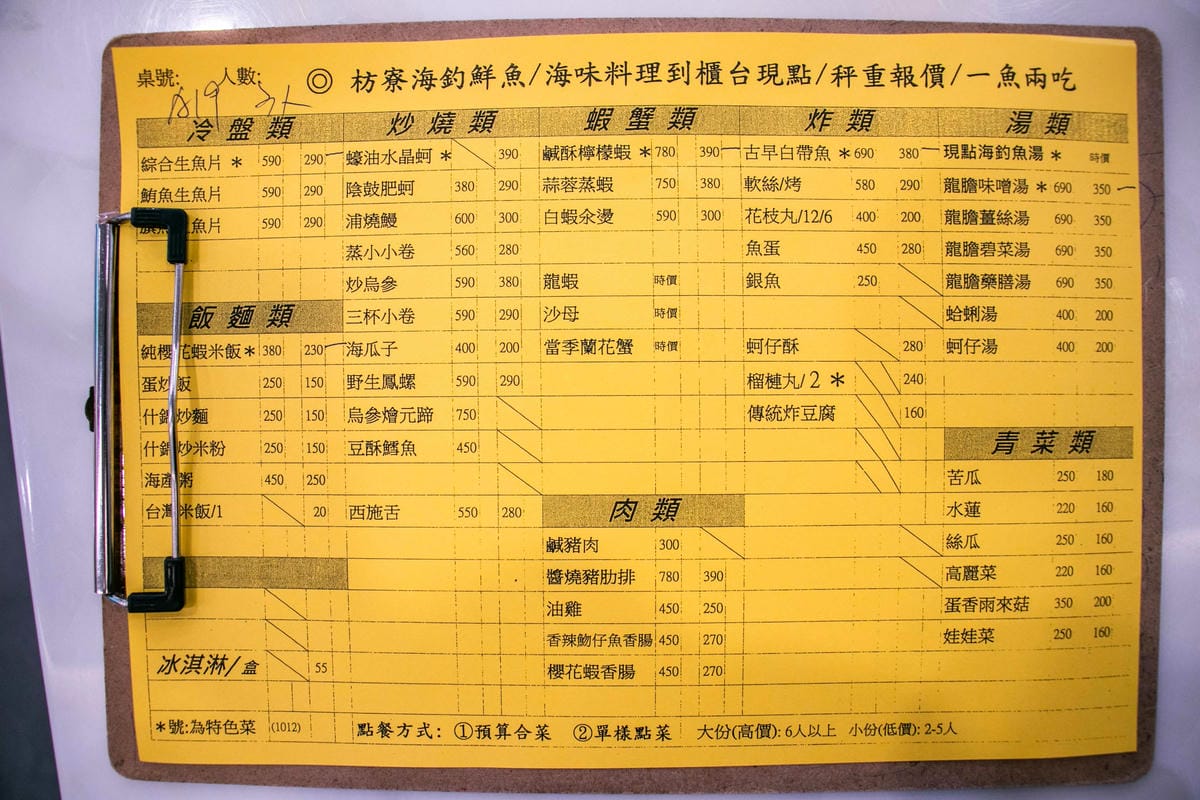 桌號: A19 人數: 3大 ◎ 枋寮海釣鮮魚/海味料理到櫃台現點/秤重報價/一魚兩吃
冷盤類
綜合生魚片* 590 290
鮪魚生魚片 590 290
旗魚生魚片 590 290
飯麵類
純櫻花蝦米飯* 380 230
蛋炒飯 250 150
什錦炒麵 250 150
什錦炒米粉 250 150
海產粥 450 250
台灣米飯/1 20
冰淇淋/盒 55
炒燒類
蠔油水晶蚵* 390
陰鼓肥蚵 380 290
浦燒鰻 600 300
蒸小小卷 560 280
炒烏參 590 380
三杯小卷 590 290
海瓜子 400 200
野生鳳螺 590 290
烏參燴元蹄 750
豆酥鱈魚 450
西施舌 550 280
蝦蟹類
鹹酥檸檬蝦* 780 390
蒜蓉蒸蝦 750 380
白蝦氽燙 590 300
龍蝦 時價
沙母 時價
當季蘭花蟹 時價
肉類
鹹豬肉 300
醬燒豬肋排 780 390
油雞 450 250
香辣魩仔魚香腸 450 270
櫻花蝦香腸 450 270
炸類
古早白帶魚* 690 380
軟絲/烤 580 290
花枝丸/12/6 400 200
魚蛋 450 280
銀魚 250
蚵仔酥 280
榴槤丸/2 * 240
傳統炸豆腐 160
湯類
現點海釣魚湯* 時價
龍膽味噌湯* 690 350
龍膽薑絲湯 690 350
龍膽碧菜湯 690 350
龍膽藥膳湯 690 350
蛤蜊湯 400 200
蚵仔湯 400 200
青菜類
苦瓜 250 180
水蓮 220 160
絲瓜 250 160
高麗菜 220 160
蛋香雨來菇 350 200
娃娃菜 250 160
*號:為特色菜 (1012) 點餐方式: ①預算合菜 ②單樣點菜 大份(高價): 6人以上 小份(低價): 2-5人